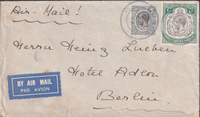 Air-Mail!
Herrn Heinz Lueben
Hotel Adlon
Berlin.
BY AIR MAIL
PAR AVION